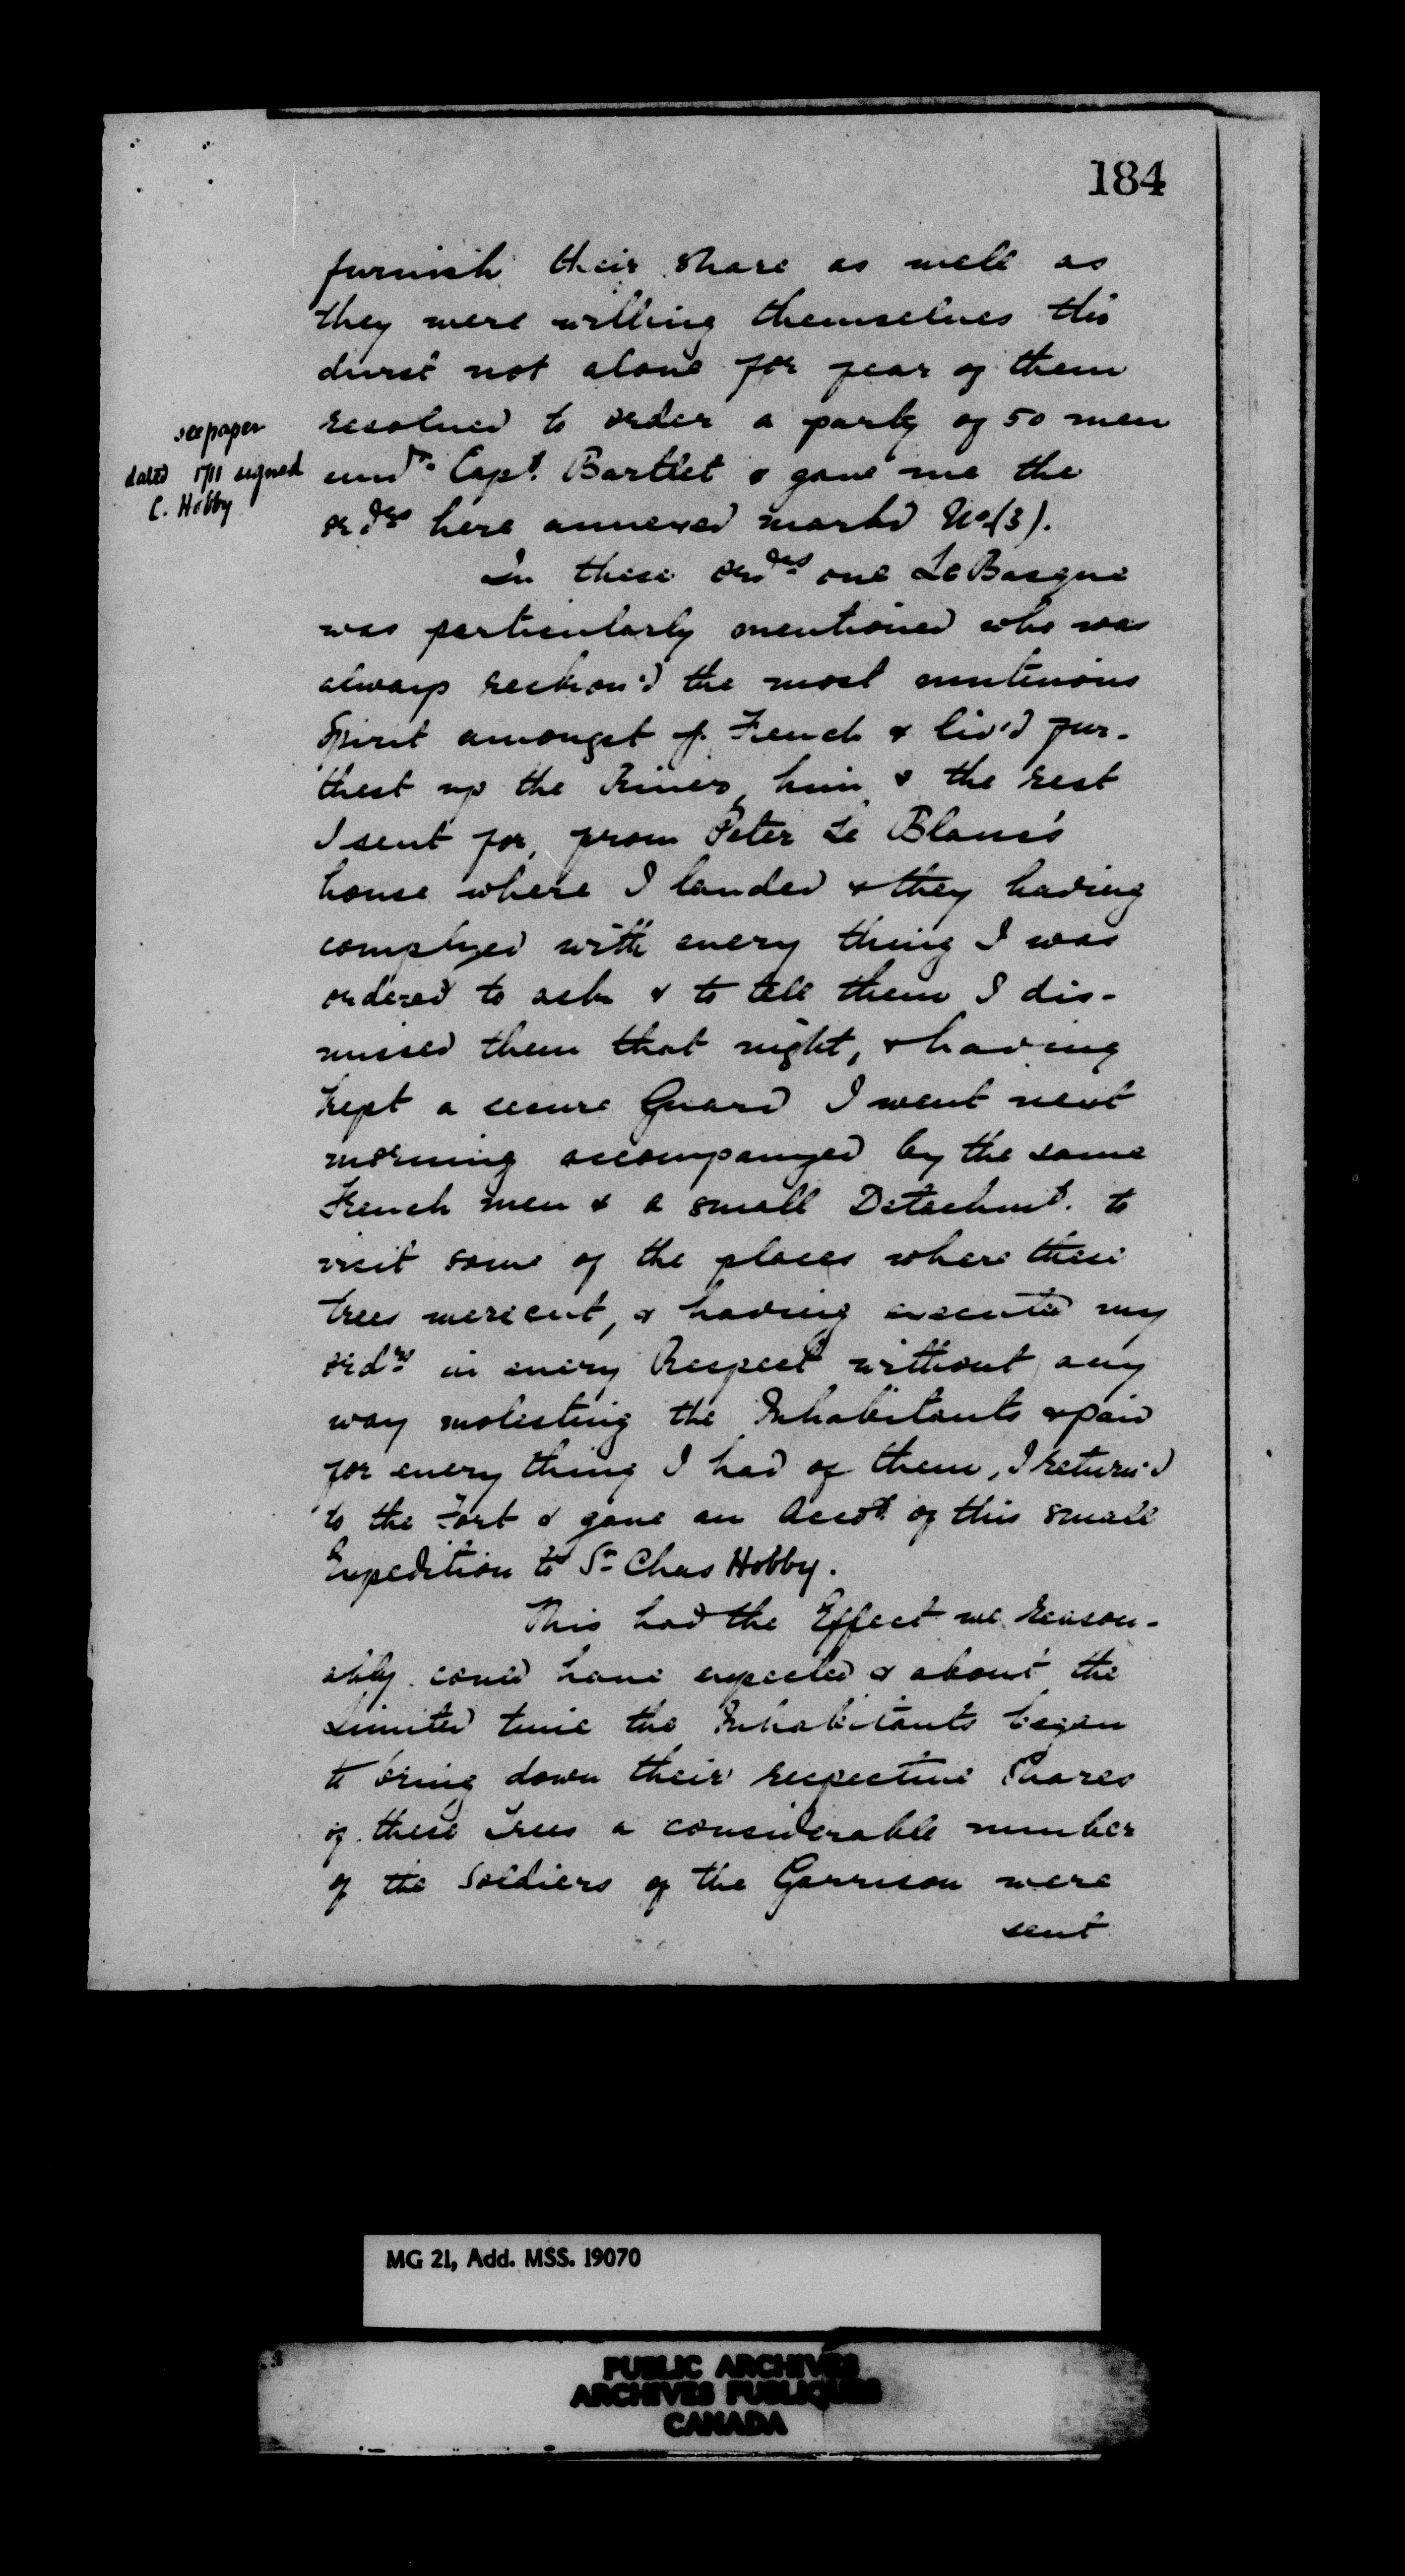 184
furnish their share as well as
they were willing themselves tho
durst not alone for fear of them
see paper
dated 1711 signed
C. Hobby
resolved to order a party of 50 men
undr Capt. Bartlet & gave me the
ordrs here annexed markd No (3).
In these ordrs one Le Basque
was particularly mentioned who was
always reckon'd the most mutinous
Spirit amongst ye French & liv'd fur-
thest up the River, him & the rest
I sent for, from Peter Le Blanc's
house where I landed & they having
complyed with every thing I was
ordered to ask & to tell them I dis-
missed them that night, & having
kept a secure Guard I went next
morning accompanyed by the same
French men & a small Detachmt. to
visit some of the places where these
trees were cut, & having executed my
ordrs in every Respect without any
way molesting the Inhabitants & paid
for every thing I had of them, I return'd
to the Fort & gave an Accot of this small
Expedition to Sr Chas Hobby.
This had the Effect we reason-
ably could have expected & about the
Limited time the Inhabitants began
to bring down their respective Shares
of these Trees a considerable number
of the Soldiers of the Garrison were
sent
MG 21, Add. MSS. 19070
PUBLIC ARCHIVES
ARCHIVES PUBLIQUES
CANADA